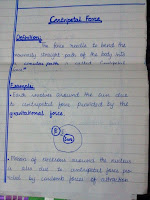 Centripetal Force
Definition:
The force needed to bend the
normally straight path of the body into
a circular path is called Centripetal
force"
Example:
• Each revolves around the sun due
to centripetal force provided by the
gravitational force.
E
Sun
• Motion of electrons around the nucleus
is also due to centripetal force pro-
vided by coulomb force of attraction